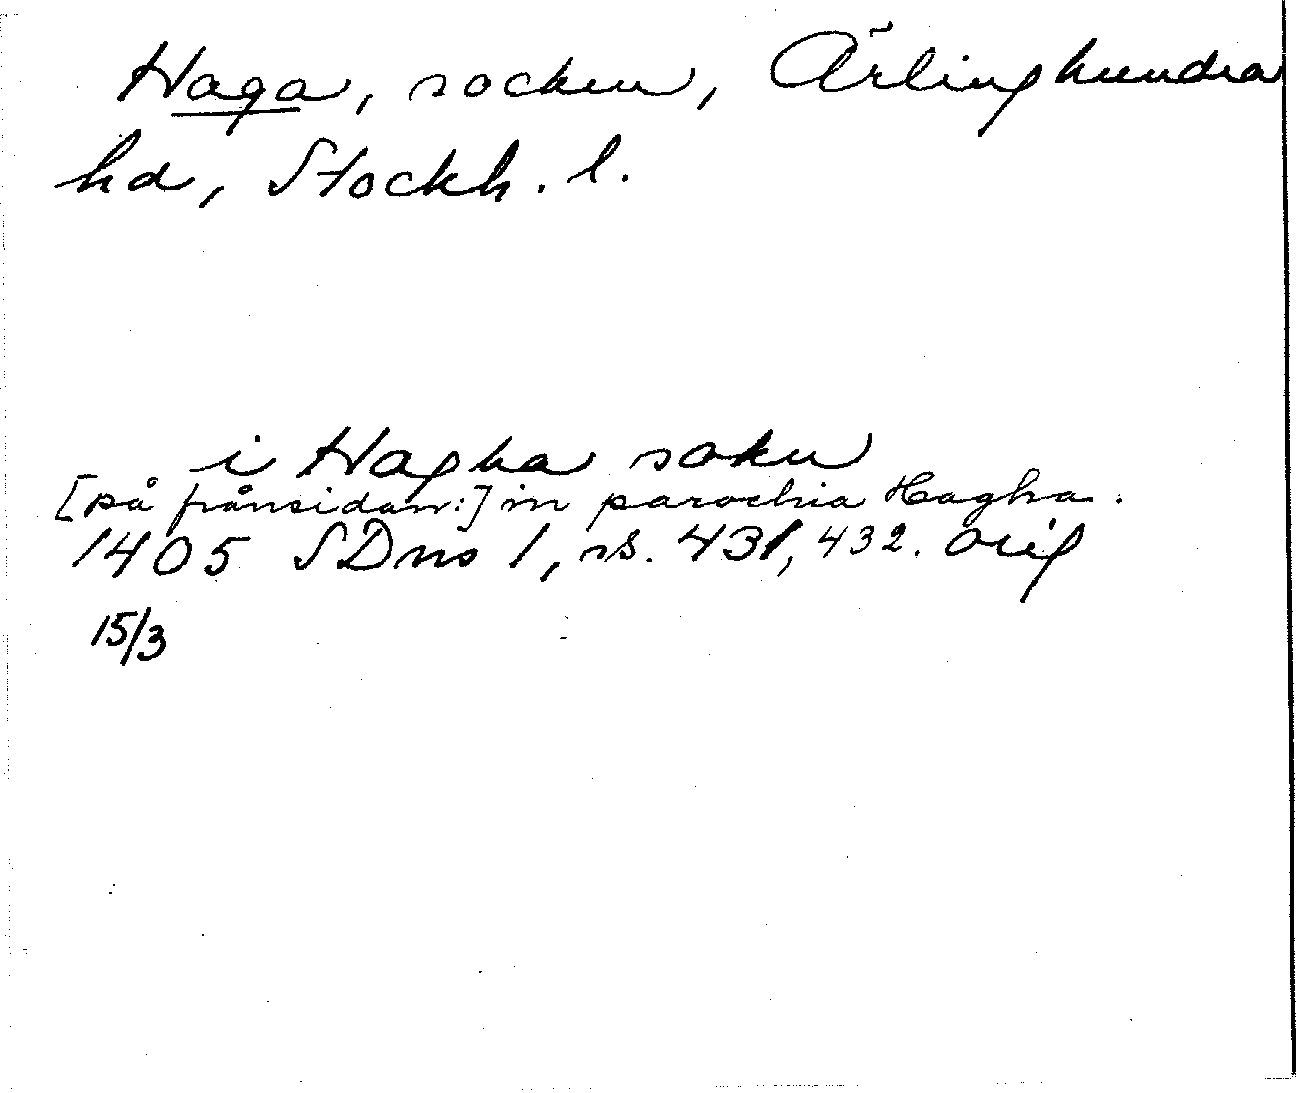 Haga, socken, Ärlinghundra
hd, Stockh. l.
i Hagha sokn
[på frånsidan:] in parochia Hagha.
1405 SDns 1, ns. 431, 432. orig
15/3